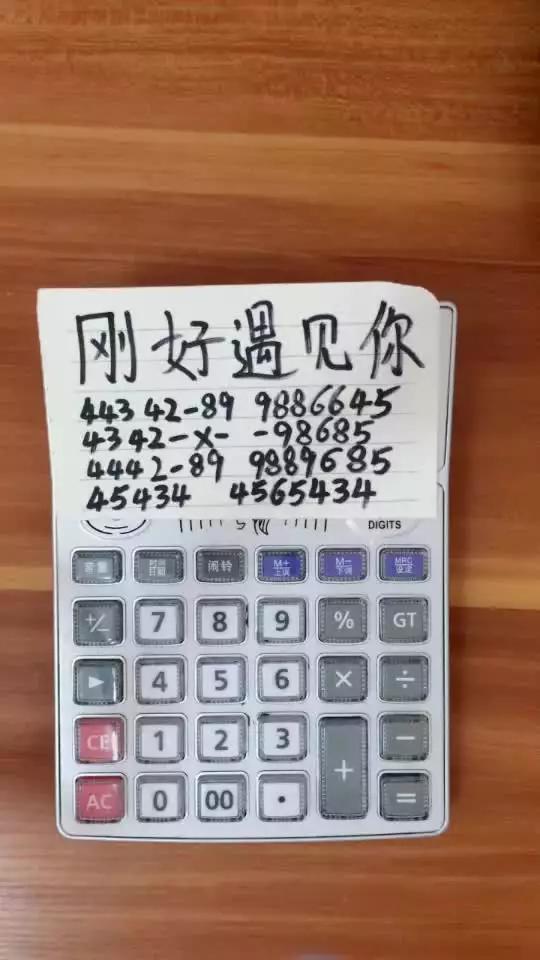 刚好遇见你
44342-89 9886645
4342-x- -98685
4442-89 9889685
45434 4565434
DIGITS
音量 时间日期 闹铃 M+上调 M-下调 MRC设定
+/- 7 8 9 % GT
▶ 4 5 6 × ÷
CE 1 2 3 + -
AC 0 00 · =